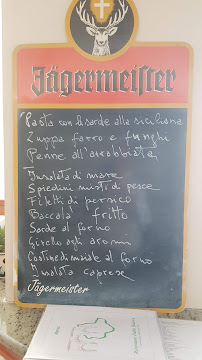 Jägermeister
Pasta con le sarde alla siciliana
Zuppa farro e funghi
Penne all'arrabbiata
Insalata di mare
Spiedini misti di pesce
Filetti di persico
Baccalà fritto
Sarde al forno
Girello agli aromi
Costine di maiale al forno
Insalata caprese
Jägermeister